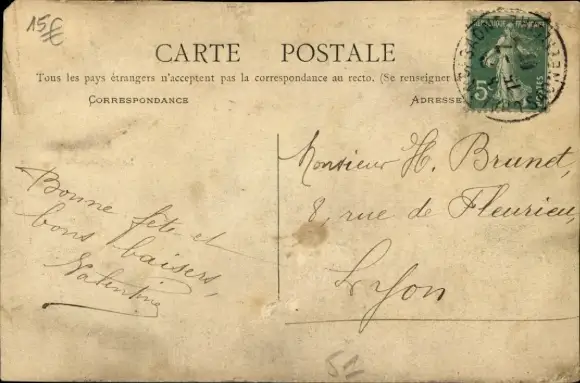 15€
CARTE POSTALE
Tous les pays étrangers n'acceptent pas la correspondance au recto. (Se renseigner
CORRESPONDANCE
ADRESSE
5c
POSTES
Monsieur H. Brunet,
8, rue de Fleurieu,
Lyon
Bonne fête et
bons baisers,
Valentine
51